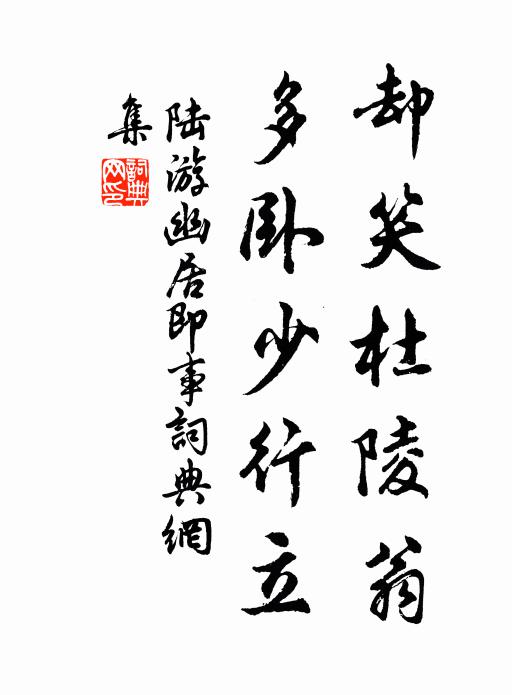 却笑杜陵翁
多卧少行立
陆游幽居即事詞典網
集
詞典網印